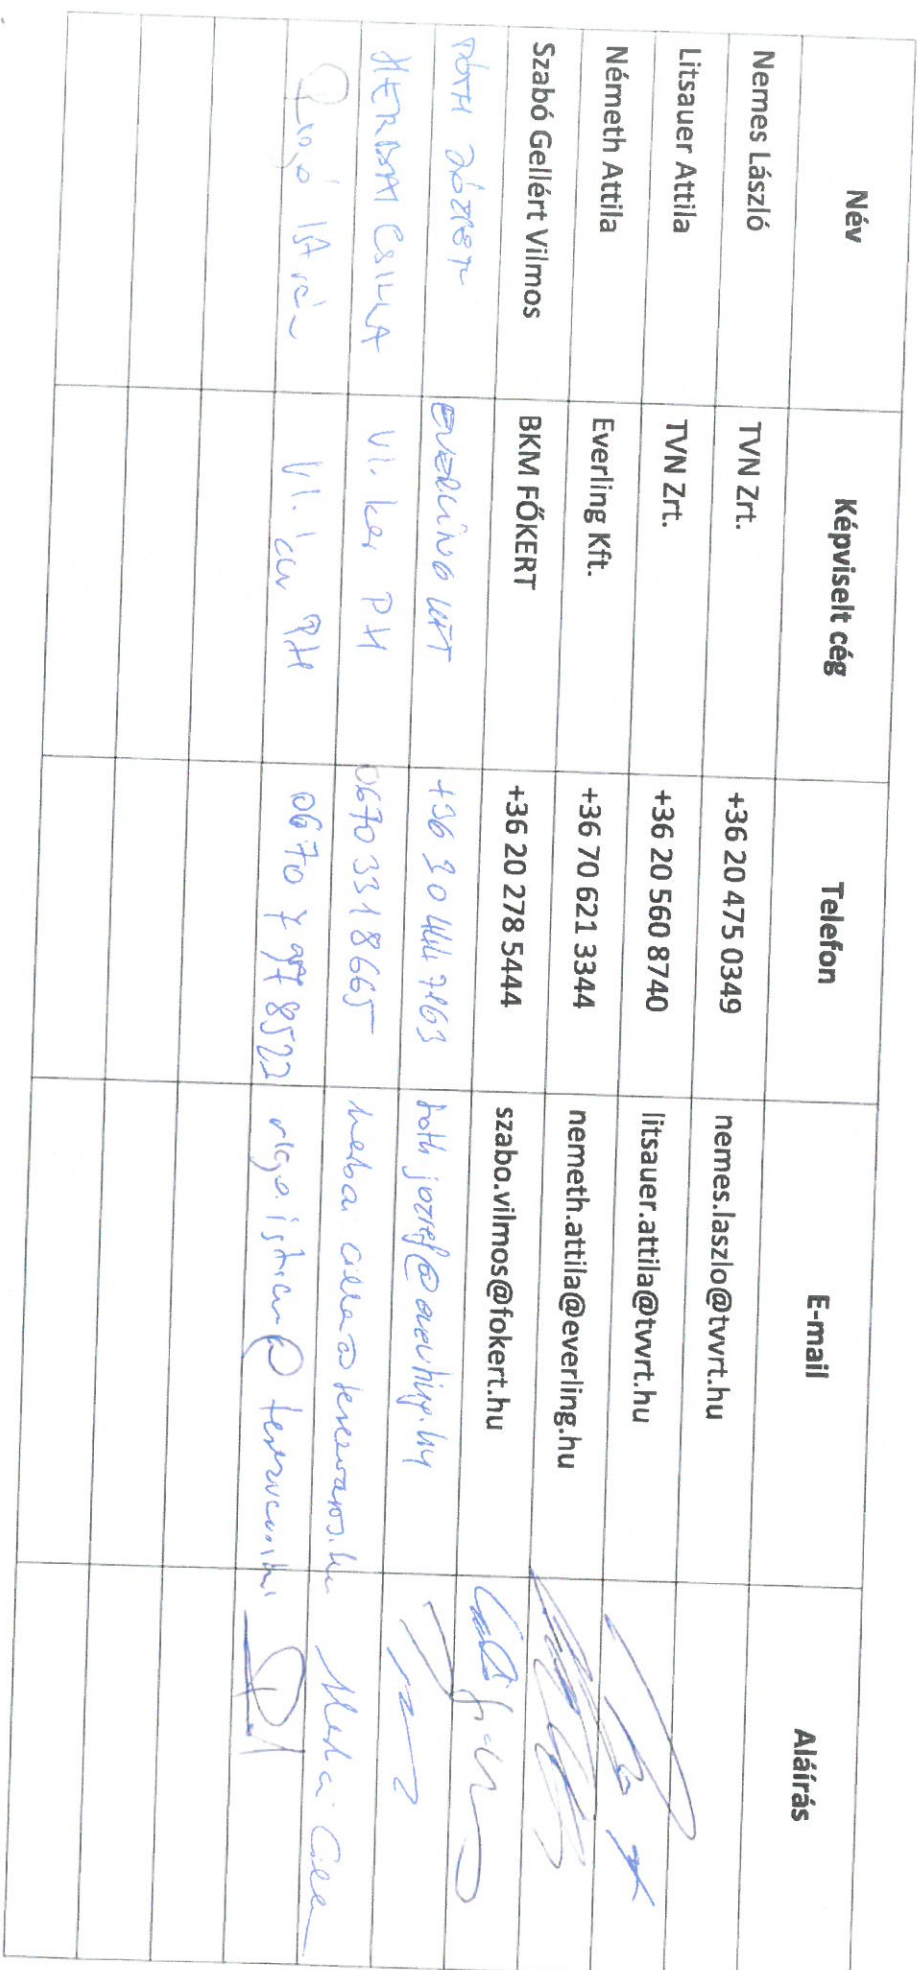 Név Képviselt cég Telefon E-mail Aláírás
Nemes László TVN Zrt. +36 20 475 0349 nemes.laszlo@tvvrt.hu
Litsauer Attila TVN Zrt. +36 20 560 8740 litsauer.attila@tvvrt.hu
Németh Attila Everling Kft. +36 70 621 3344 nemeth.attila@everling.hu
Szabó Gellért Vilmos BKM FŐKERT +36 20 278 5444 szabo.vilmos@fokert.hu
TÓTH JÓZSEF EVERLING KFT +36 30 444 7163
HERBAI CSILLA VI. ker PH 0670 3318665
István VI. ker PH 0670 7978522